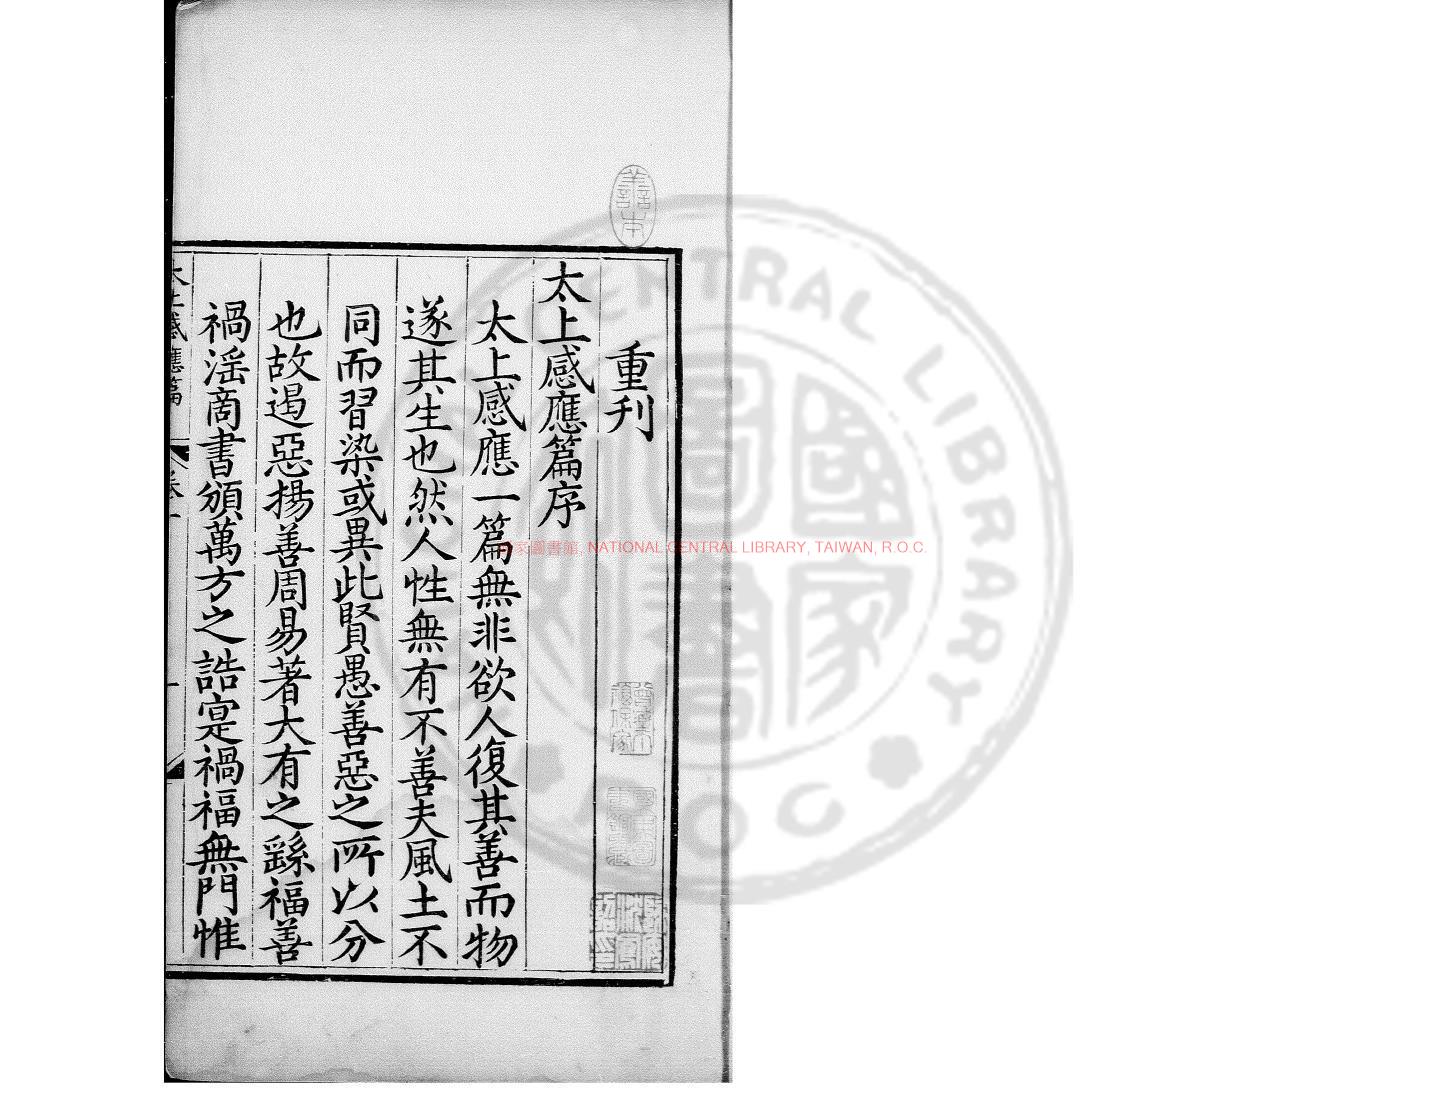 重刊
太上感應篇序
太上感應一篇無非欲人復其善而物
遂其生也然人性無有不善夫風土不
同而習染或異此賢愚善惡之所以分
也故遏惡揚善周易著大有之繇福善
禍淫商書頒萬方之誥寔禍福無門惟
太上感應篇 卷一
善本
國家圖書館, NATIONAL CENTRAL LIBRARY, TAIWAN, R.O.C.
CENTRAL LIBRARY
ROC
國家圖書